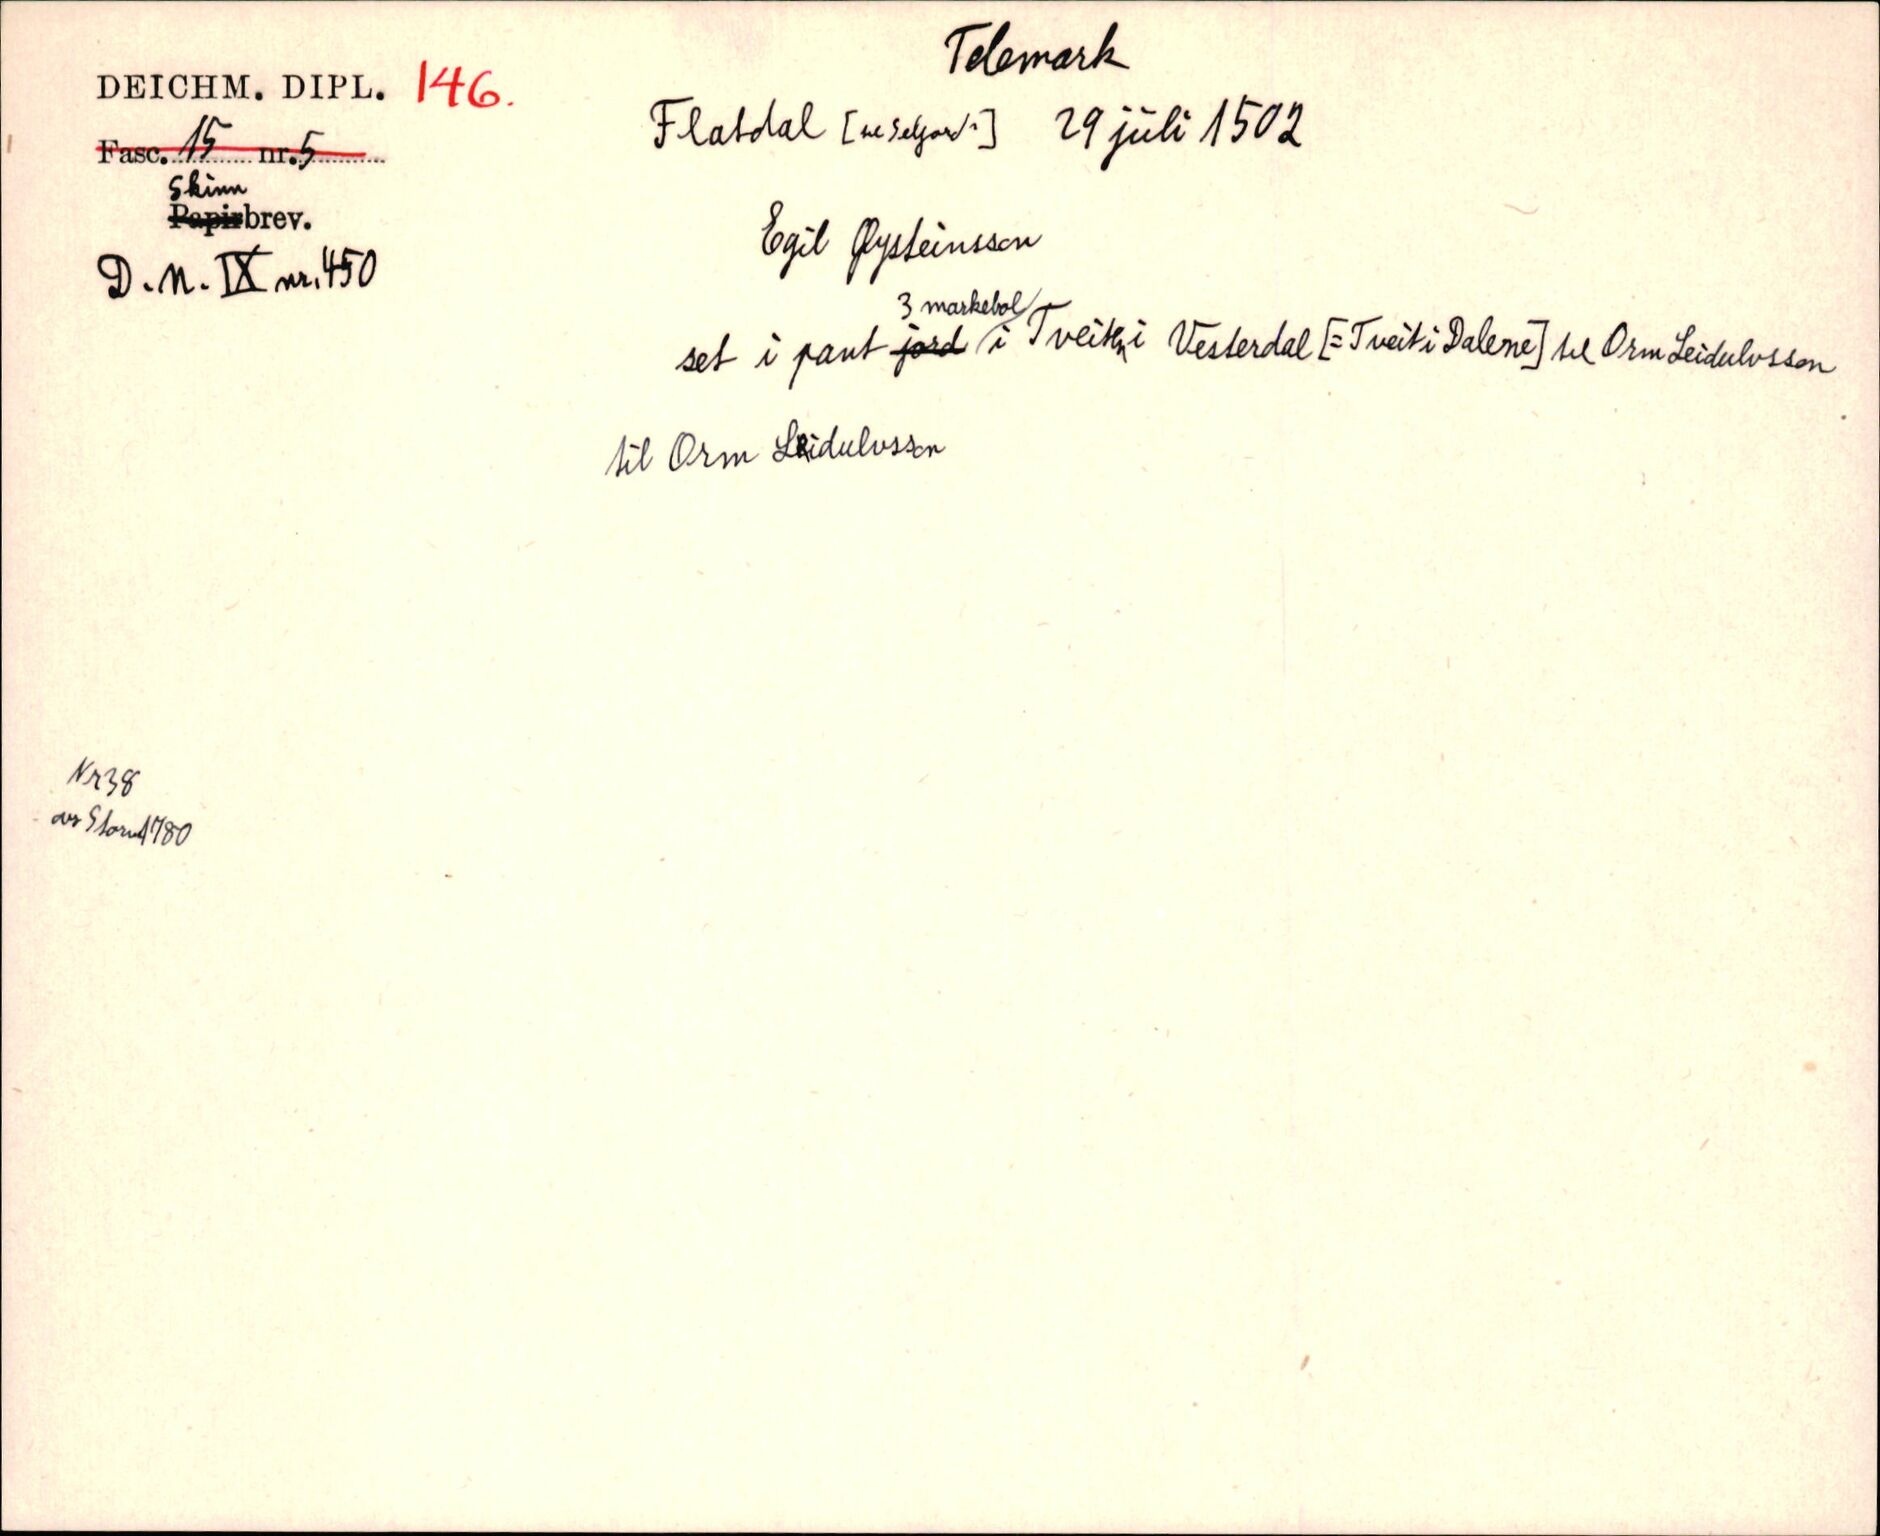 Telemark
DEICHM. DIPL. 146.
Flatdal [Seljord] 29 juli 1502
Fasc. 15 nr. 5
Skinn
Papirbrev.
Egil Øysteinsson
D. N. IX nr. 450
3 markebol
set i pant jord i Tveiten i Vesterdal [= Tveit i Dalene] til Orm Leidulvsson
til Orm Leidulvsson
Nr 38
av Storm 1780